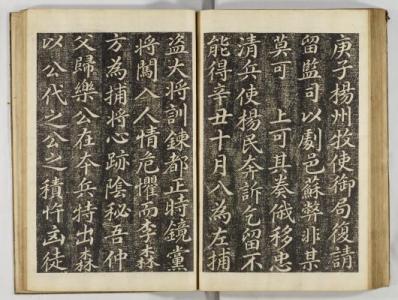 庚子楊州牧使御局復請
留監司以劇邑蘇弊非某
莫可　上可其奏俄移忠
清兵使楊民奔訴乞留不
能得辛丑十月入為左捕
盜大將訓鍊都正時鏡黨
將闖入人情危懼而李森
方為捕將心跡陰秘吾仲
父歸樂公在本兵特出森
以公代之公之積忤凶徒